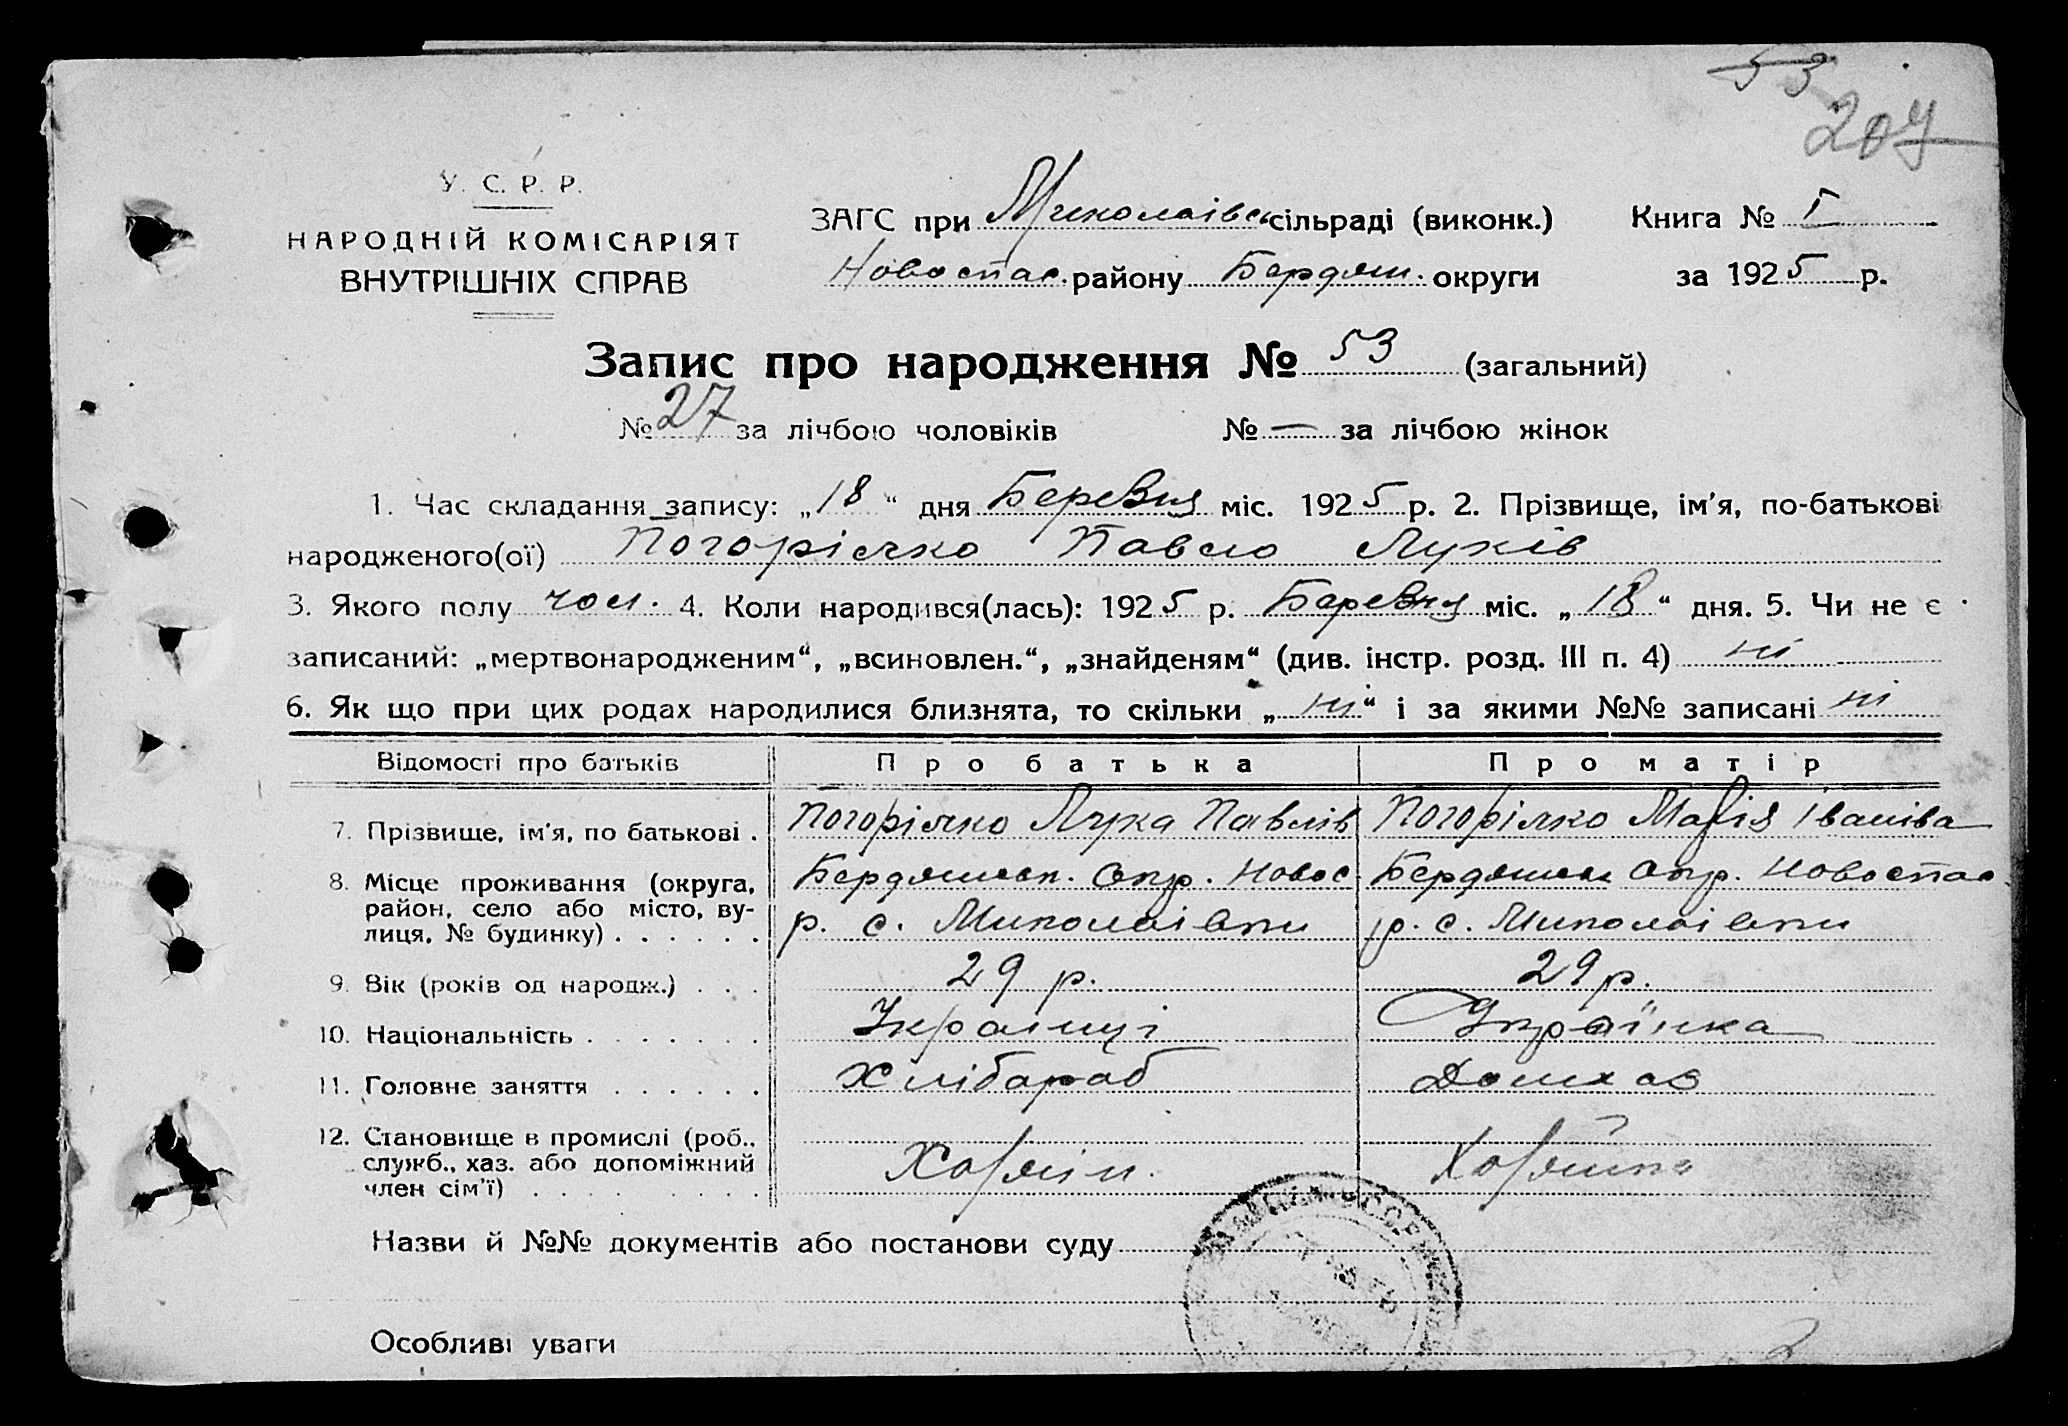 53
207
У. С. Р. Р.
НАРОДНІЙ КОМІСАРІЯТ
ВНУТРІШНІХ СПРАВ
ЗАГС при Миколаівсь сільраді (виконк.) Книга № I
Новоспас. району Бердян. округи за 1925 р.
Запис про народження № 53 (загальний)
№ 27 за лічбою чоловіків № — за лічбою жінок
1. Час складання запису: „18“ дня Березня міс. 1925 р. 2. Прізвище, ім'я, по-батькові
народженого(ої) Погорілко Павло Луків
3. Якого полу чол. 4. Коли народився(лась): 1925 р. Березня міс. „18“ дня. 5. Чи не є
записаний: „мертвонародженим“, „всиновлен.“, „знайденям“ (див. інстр. розд. III п. 4) ні
6. Як що при цих родах народилися близнята, то скільки „ні“ і за якими №№ записані ні
Відомості про батьків Про батька Про матір
7. Прізвище, ім'я, по батькові . Погорілко Лука Павлів Погорілко Марія Іванівна
8. Місце проживання (округа, Бердянськ. Окр. Новос Бердянськ Окр. Новоспас
район, село або місто, ву-
лиця, № будинку) . . . . . . р. с. Миколаівки р. с. Миколаівки
9. Вік (років од народж.) . . . 29 р. 29 р.
10. Національність . . . . . . . Украінці Українка
11. Головне заняття . . . . . . Хлібараб Домхаз
12. Становище в промислі (роб.,
служб., хаз. або допоміжний Хазяін. Хазяйка
член сім'ї) . . . . . . . . .
Назви й №№ документів або постанови суду
Особливі уваги